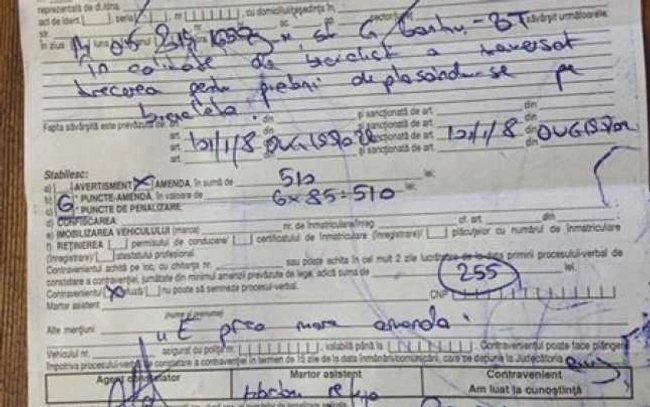 reprezentată de dl./dna.
act de ident [ ], seria [ ], nr. cu domiciliul/sediul în
în ziua luna 05 2015 str. G. -BT săvârșit următoarele
în calitate de biciclist a traversat
trecerea pentru pietoni deplasându-se pe
bicicleta.
Fapta săvârșită este prevăzută de art. din și sancționată de art. din
art. 101/1/8 din OUG 195/2002 și sancționată de art. 101/1/8 din OUG 195/2002
art. din și sancționată de art. din
Stabilesc:
a) [ ] AVERTISMENT [X] AMENDA, în sumă de 510 lei;
b) [6] PUNCTE-AMENDA, în valoare de 6x85=510 lei;
c) PUNCTE DE PENALIZARE
d) CONFISCAREA
e) IMOBILIZAREA VEHICULULUI (marca) nr. de înmatriculare/înreg. cf. art. din
f) REȚINEREA [ ] permisului de conducere/ [ ] certificatului de înmatriculare (înregistrare)/ [ ] plăcuțelor cu numărul de înmatriculare
(înregistrare)/ [ ] atestatului profesional.
Contravenientul achită pe loc, cu chitanța nr. sau poate achita în cel mult 2 zile lucrătoare de la data primirii procesului-verbal de
constatare a contravenției, jumătate din minimul amenzii prevăzute de lege, adică suma de 255 lei.
Contravenientul [X] refuză/ [ ] nu poate să semneze procesul-verbal.
Martor asistent CNP
(nume și prenume)
Alte mențiuni: "E prea mare amenda"
Vehiculul nr. asigurat cu polița nr. valabilă până la Contravenientul poate face plângere
împotriva procesului-verbal de constatare a contravenției în termen de 15 zile de la data înmânării/comunicării, care se depune la Judecătoria
Agent constatator Martor asistent Contravenient
Am luat la cunoștință